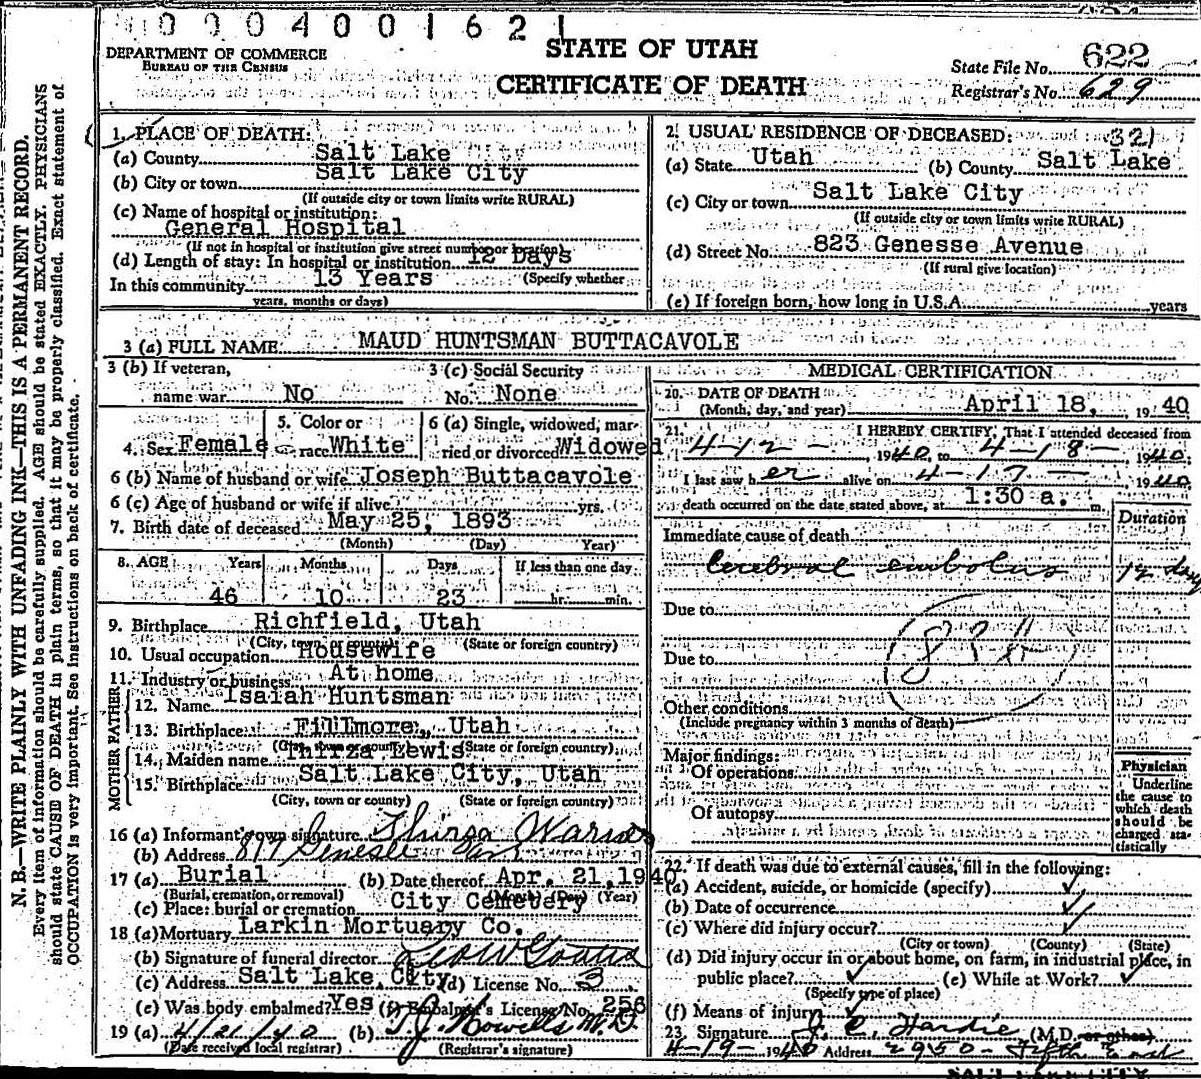 0004001621
STATE OF UTAH
CERTIFICATE OF DEATH
DEPARTMENT OF COMMERCE
BUREAU OF THE CENSUS
State File No. 622
Registrar's No. 629
N. B.—WRITE PLAINLY WITH UNFADING INK—THIS IS A PERMANENT RECORD.
Every item of information should be carefully supplied. AGE should be stated EXACTLY. PHYSICIANS
should state CAUSE OF DEATH in plain terms, so that it may be properly classified. Exact statement of
OCCUPATION is very important. See instructions on back of certificate.
1. PLACE OF DEATH:
(a) County Salt Lake City
(b) City or town Salt Lake City
(If outside city or town limits write RURAL)
(c) Name of hospital or institution:
General Hospital
(If not in hospital or institution give street number or location)
(d) Length of stay: In hospital or institution 12 Days
In this community 13 Years (Specify whether
years, months or days)
2. USUAL RESIDENCE OF DECEASED: 321
(a) State Utah (b) County Salt Lake
(c) City or town Salt Lake City
(If outside city or town limits write RURAL)
(d) Street No. 823 Genesse Avenue
(If rural give location)
(e) If foreign born, how long in U.S.A. years
3 (a) FULL NAME MAUD HUNTSMAN BUTTACAVOLE
3 (b) If veteran,
name war No
3 (c) Social Security
No. None
4. Sex Female
5. Color or
race White
6 (a) Single, widowed, mar-
ried or divorced Widowed
6 (b) Name of husband or wife Joseph Buttacavole
6 (c) Age of husband or wife if alive yrs.
7. Birth date of deceased May 25, 1893
(Month) (Day) Year)
8. AGE Years Months Days If less than one day
46 10 23 hr. min.
9. Birthplace Richfield, Utah
(City, town or county) (State or foreign country)
10. Usual occupation Housewife
11. Industry or business At home
FATHER
12. Name Isaiah Huntsman
13. Birthplace Fillmore, Utah
(City, town or county) (State or foreign country)
MOTHER
14. Maiden name Thirza Lewis
15. Birthplace Salt Lake City, Utah
(City, town or county) (State or foreign country)
16 (a) Informant's own signature Thirza
(b) Address 817 Genesee
17 (a) Burial (b) Date thereof Apr. 21, 1940
(Burial, cremation, or removal) (Month) (Day) (Year)
(c) Place: burial or cremation City Cemetery
18 (a) Mortuary Larkin Mortuary Co.
(b) Signature of funeral director
(c) Address Salt Lake City (d) License No. 3
(e) Was body embalmed? Yes (f) Embalmer's License No. 256
19 (a) 4/21/40 (b) T.J. Howells M.D.
(Date received local registrar) (Registrar's signature)
MEDICAL CERTIFICATION
20. DATE OF DEATH
(Month, day, and year) April 18, 1940
21. I HEREBY CERTIFY, That I attended deceased from
4-12-, 1940, to 4-18-, 1940.
I last saw her alive on 4-17- 1940
death occurred on the date stated above, at 1:30 a. m.
Duration
Immediate cause of death
Cerebral embolus 12 day
Due to
83
Due to
Other conditions
(Include pregnancy within 3 months of death)
Major findings:
Of operations
Of autopsy
Physician
Underline
the cause to
which death
should be
charged sta-
tistically
22. If death was due to external causes, fill in the following:
(a) Accident, suicide, or homicide (specify) ✓
(b) Date of occurrence ✓
(c) Where did injury occur? ✓
(City or town) (County) (State)
(d) Did injury occur in or about home, on farm, in industrial place, in
public place? ✓ (e) While at Work? ✓
(Specify type of place)
(f) Means of injury ✓
23. Signature J. C. Hardie (M.D. or other)
4-19-1940 Address 2950- Fifth East
SALT LAKE CITY